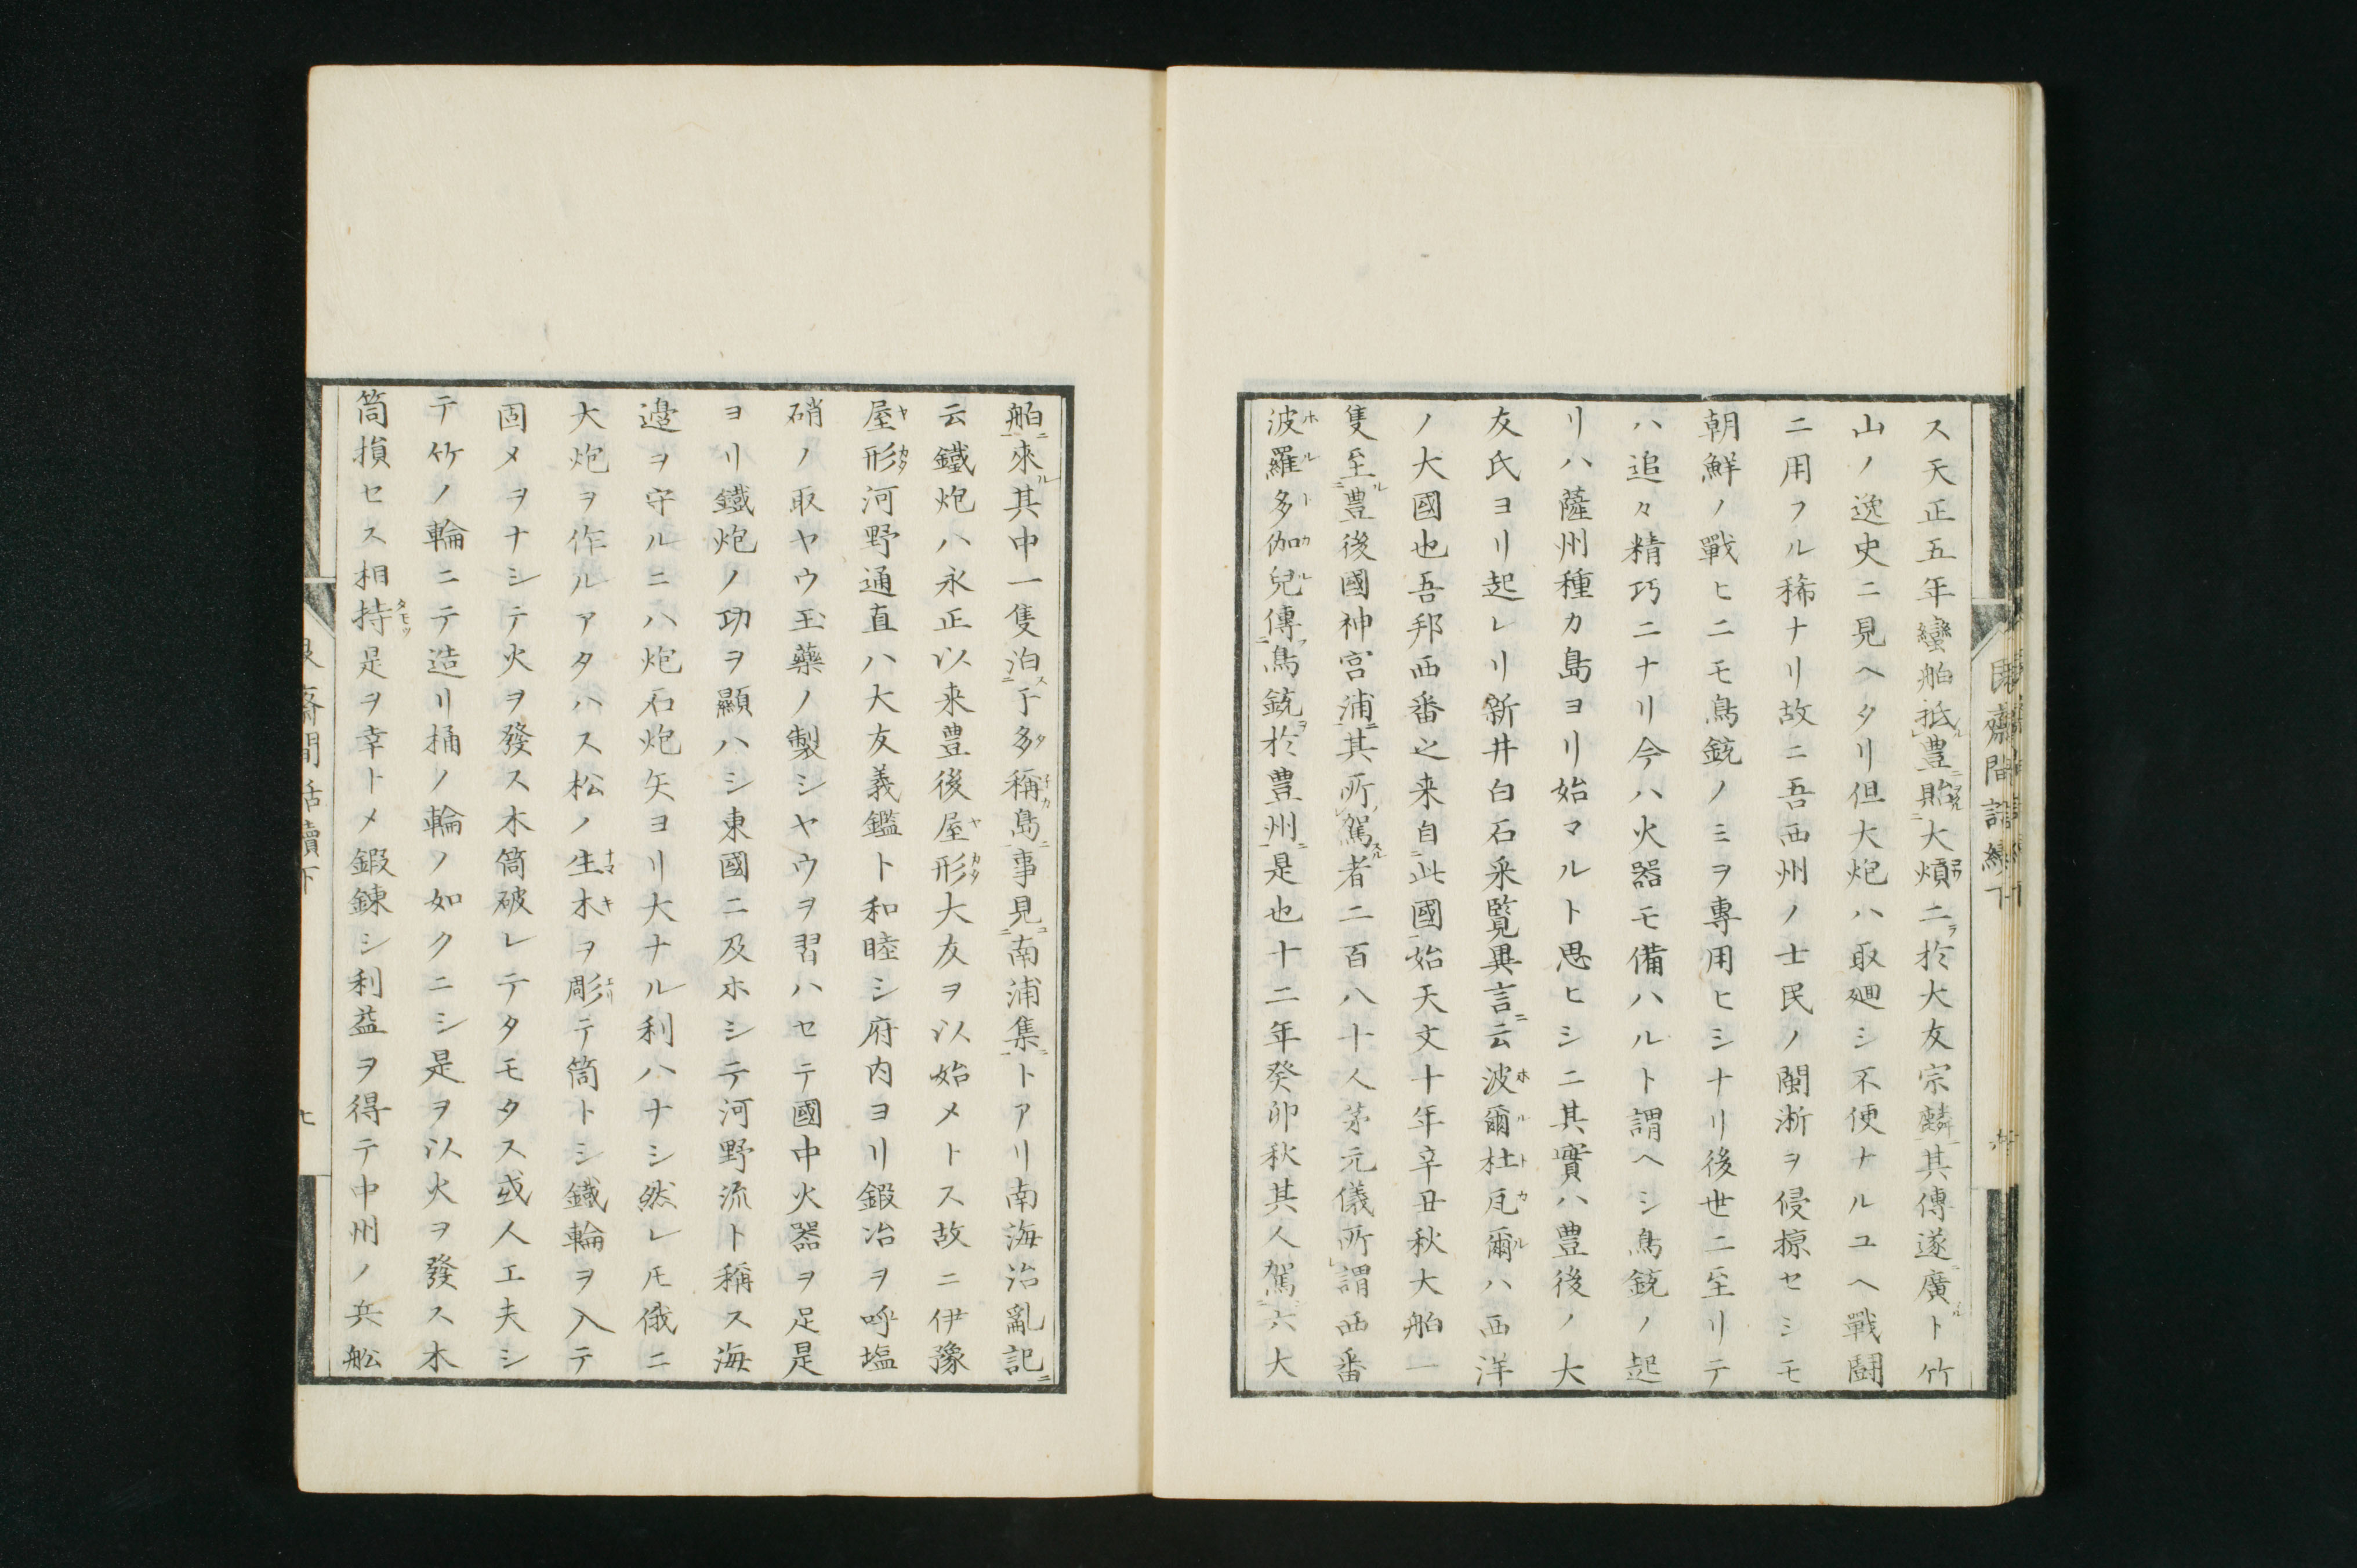 ス天正五年蠻舶抵豊貽大熕二於大友宗麟其傳遂廣ト竹
山ノ逸史ニ見ヘタリ但大炮ハ取廻シ不便ナルユヘ戰鬪
ニ用フル稀ナリ故ニ吾西州ノ士民ノ閩浙ヲ侵掠セシモ
朝鮮ノ戰ヒニモ鳥銃ノミヲ專用ヒシナリ後世ニ至リテ
ハ追々精巧ニナリ今ハ火器モ備ハルト謂ヘシ鳥銃ノ起
リハ薩州種カ島ヨリ始マルト思ヒシニ其實ハ豊後ノ大
友氏ヨリ起レリ新井白石采覧異言云波爾杜瓦爾ハ西洋
ノ大國也吾邦西番之来自此國始天文十年辛丑秋大舶一
隻至豊後國神宮浦其所駕者二百八十人茅元儀所謂西番
波羅多伽兒傳鳥銃於豊州是也十二年癸卯秋其人駕六大
舶來其中一隻泊于多稱島事見南浦集トアリ南海治亂記
云鐵炮ハ永正以来豊後屋形大友ヲ以始メトス故ニ伊豫
屋形河野通直ハ大友義鑑ト和睦シ府内ヨリ鍜冶ヲ呼塩
硝ノ取ヤウ玉藥ノ製シヤウヲ習ハセテ國中火器ヲ足是
ヨリ鐵炮ノ功ヲ顯ハシ東國ニ及ホシテ河野流ト稱ス海
邉ヲ守ルニハ炮石炮矢ヨリ大ナル利ハナシ然レ𪜈俄ニ
大炮ヲ作ルアタハス松ノ生木ヲ彫テ筒トシ鐵輪ヲ入テ
固メヲナシテ火ヲ發ス木筒破レテタモタス或人工夫シ
テ竹ノ輪ニテ造リ桶ノ輪ノ如クニシ是ヲ以火ヲ發ス木
筒損セス相持是ヲ幸トメ鍜錬シ利益ヲ得テ中州ノ兵舩